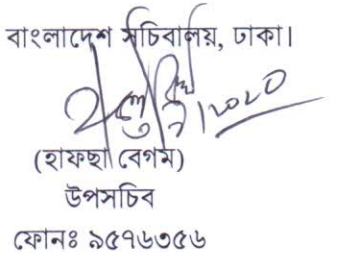 বাংলাদেশ সচিবালয়, ঢাকা।
(হাফছা বেগম)
উপসচিব
ফোনঃ ৯৫৭৬৩৫৬